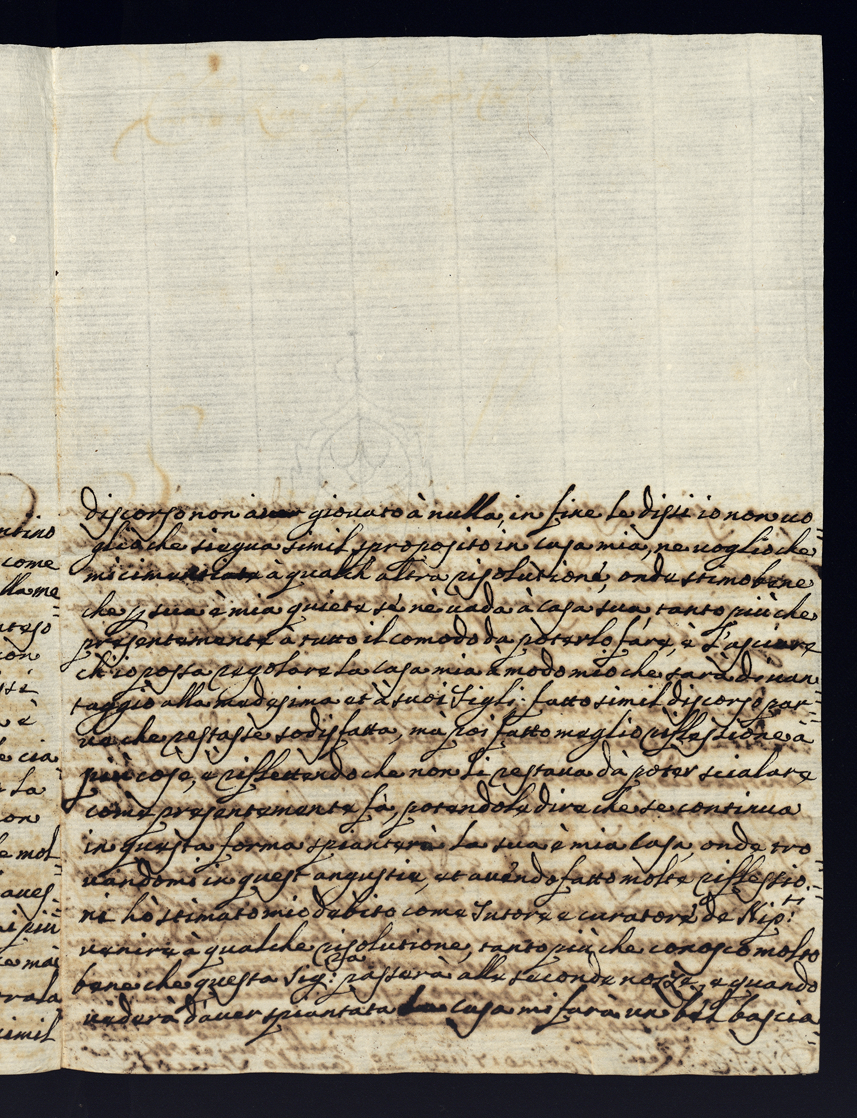 ntino
come
lla me
nteso
ion
issi
è
e cia
la
non
le mol
aues
ai più
e mai
tra la
simil
discorso non auer giouato à nulla, in fine le dissi io non uo=
glio che siegua simil sproposito in casa mia, ne uoglio che
mi cimentiate à qualch'altra risolutione, onde stimo bene
che p sua è mia quiete se nè uada à casa sua, tanto più che
presentemente à tutto il comodo da poterlo fare, è lasciare
ch'io possa regolare la casa mia à modo mio che sarà di uan=
taggio alla medesima et à suoi Figli: fatto simil discorso par=
ue che restasse sodisfatta, mà poi fatto meglio riflessione à
più cose, è riflettendo che non li restaua dà poter scialare
come presentemente fà, potendole dire che se continua
in questa forma spianterà la sua è mia Casa, onde tro=
uandomi in quest'angustie, et auendo fatto molte riflessio=
ni hò stimato mio debito come Tutore e curatore de Nipti:
uenire à qualche risolutione, tanto più che conosco molto
bene che questa Sigra: passerà alle seconde nozze, e quando
uederà d'auer spiantata la casa mi farà un bel bascia